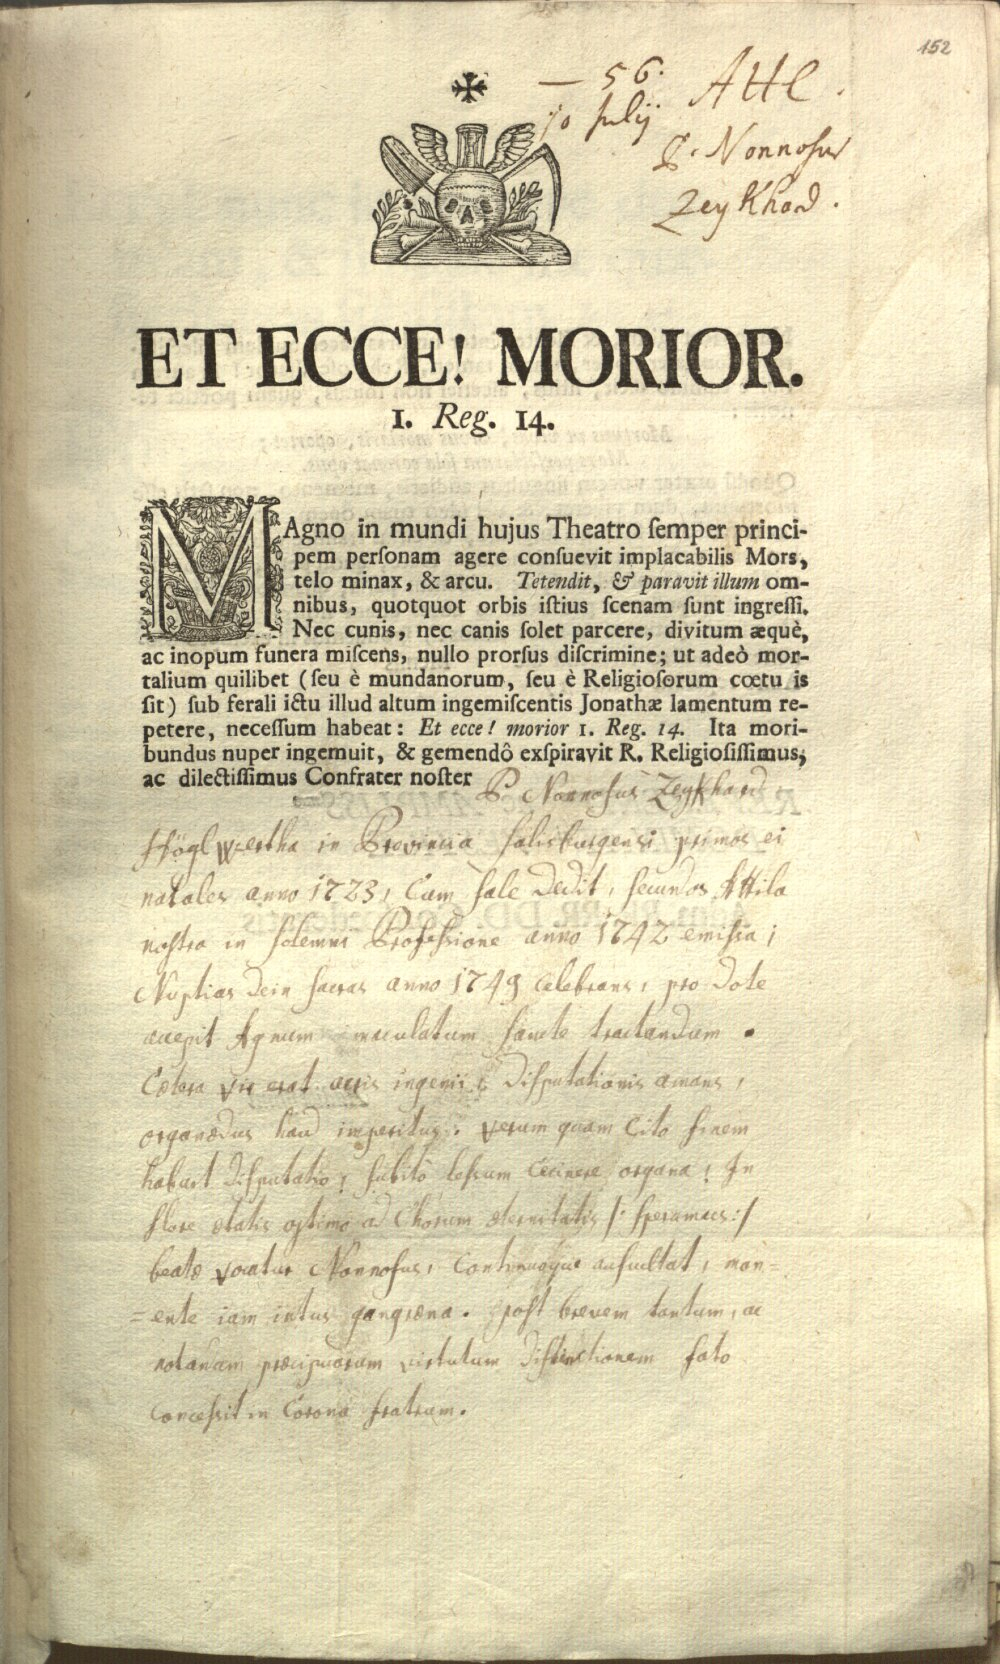 152
— 56. Attl.
10 Julij
P. Nonnosus
Zeykhard.
ET ECCE! MORIOR.
1. Reg. 14.
MAgno in mundi hujus Theatro ſemper princi-
pem perſonam agere conſuevit implacabilis Mors,
telo minax, & arcu. Tetendit, & paravit illum om-
nibus, quotquot orbis iſtius ſcenam ſunt ingreſſi.
Nec cunis, nec canis ſolet parcere, divitum æquè,
ac inopum funera miſcens, nullo prorſus diſcrimine; ut adeò mor-
talium quilibet (ſeu è mundanorum, ſeu è Religioſorum cœtu is
ſit) ſub ferali ictu illud altum ingemiſcentis Jonathæ lamentum re-
petere, neceſſum habeat: Et ecce! morior 1. Reg. 14. Ita mori-
bundus nuper ingemuit, & gemendô exſpiravit R. Religioſiſſimus,
ac dilectiſſimus Confrater noſter P. Nonnosus Zeykhard
Höglwertha in Provincia Salisburgensi primos ei
natales anno 1723, cum sale dedit, secundos Attila
nostra in solemni Professione anno 1742 emissa;
Nuptias dein sacras anno 1749 celebrans, pro dote
accepit Agnum immaculatum sancte tractandum.
Cætera vir erat acris ingenii, disputationis amans,
organædus haud imperitus. Verum quam cito finem
habuit disputatio, subitò lessum cecinere organa! In
flore ætatis optimo ad Chorum æternitatis /: speramus :/
beatæ vocatur Nonnosus, continuoque auscultat, mon=
=ente iam intus gangræna. Post brevem tantum, ac
notandam præcipuarum virtutum distinctionem fato
concessit in Corona fratrum.